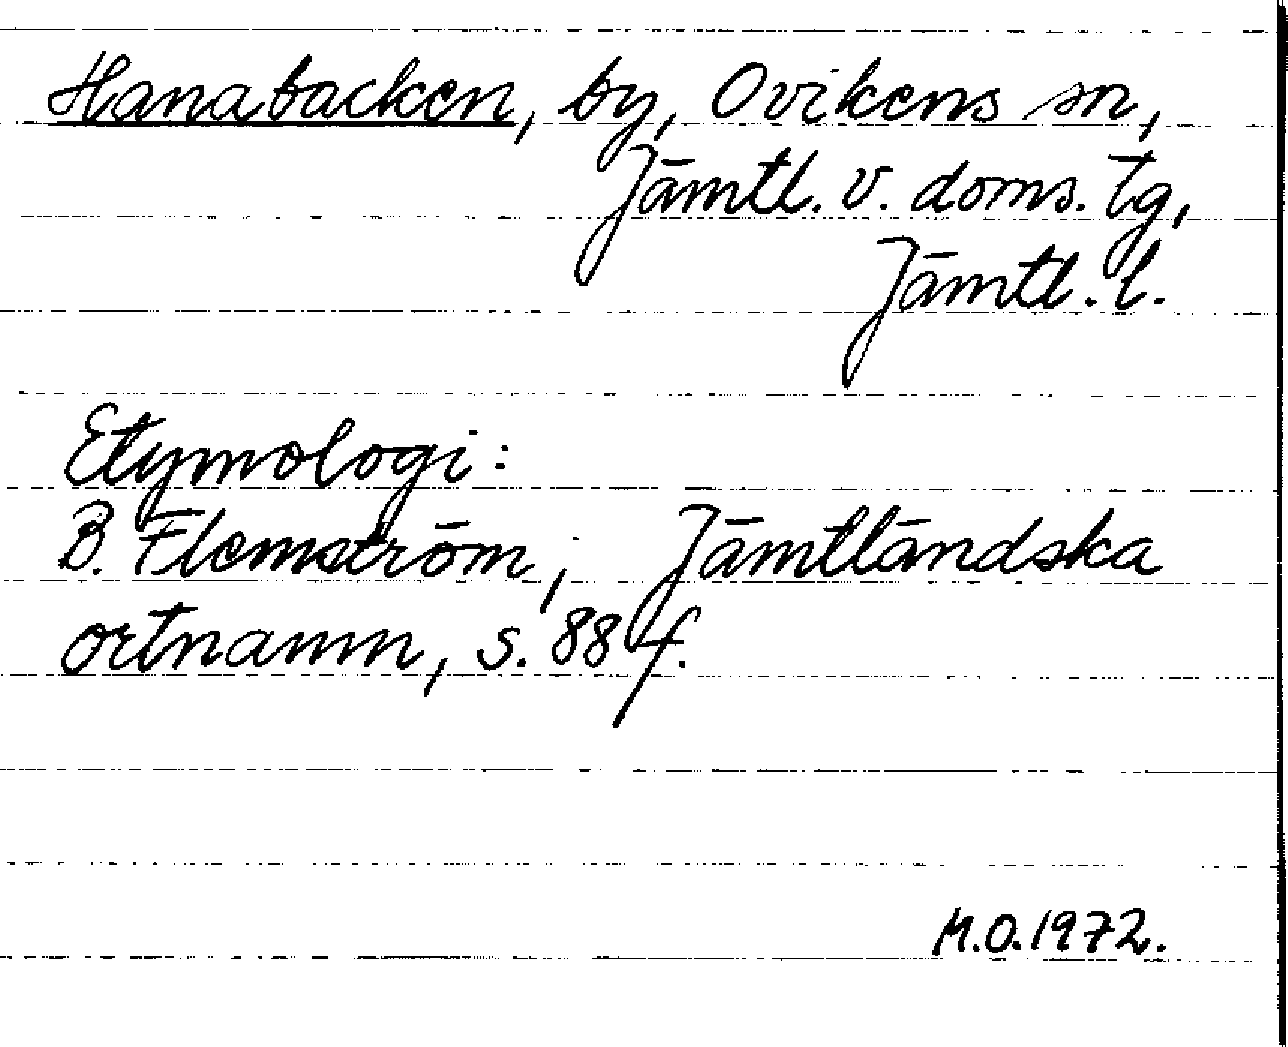 Hanabacken, by, Ovikens sn,
Jämtl. v. doms. tg,
Jämtl. l.
Etymologi:
B. Flemström, Jämtländska
ortnamn, s. 88 f.
M.O. 1972.